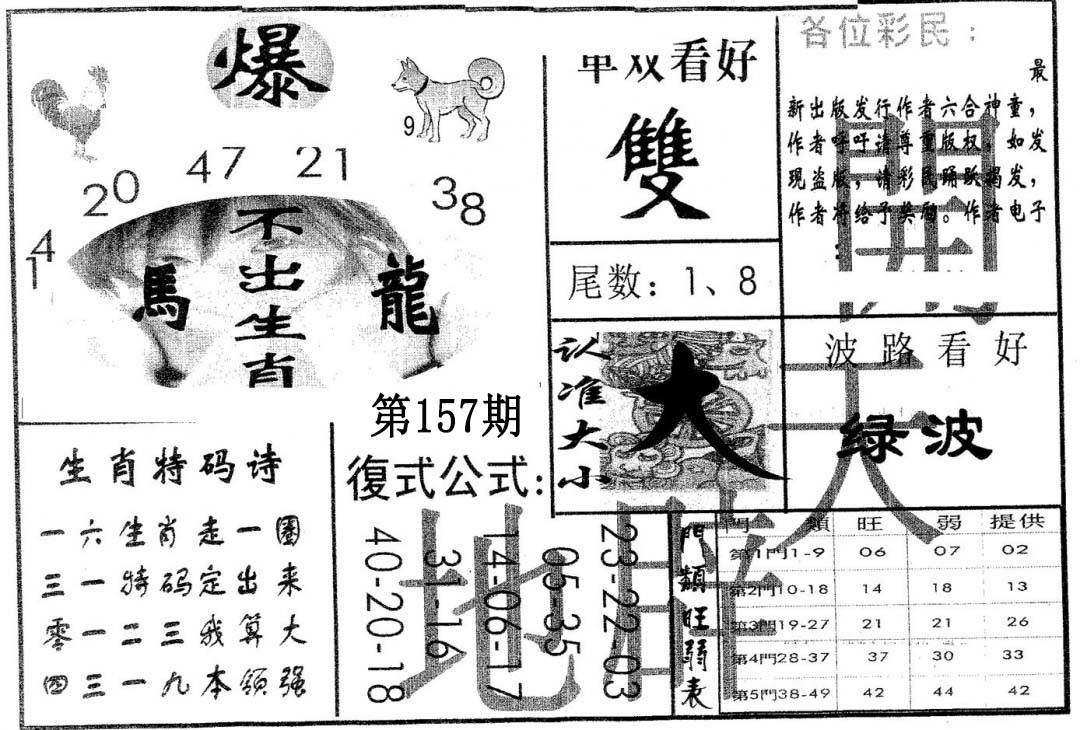 爆
9
14
20
47
21
38
不出生肖
馬
龍
单双看好
雙
尾数：1、8
认准大小
大
各位彩民：
最
新出版发行作者六合神童，
作者呼吁请尊重版权。如发
现盗版，请彩民踊跃揭发，
作者将给予奖励。作者电子
：
波路看好
绿波
第157期
生肖特码诗
一六生肖走一圈
三一特码定出来
零一二三我算大
四三一九本领强
復式公式:
40-20-18
31-16
14-06-17
05-35
23-22-03
門類旺弱表
門類 旺 弱 提供
第1門1-9 06 07 02
第2門10-18 14 18 13
第3門19-27 21 21 26
第4門28-37 37 30 33
第5門38-49 42 44 42
開
天
地